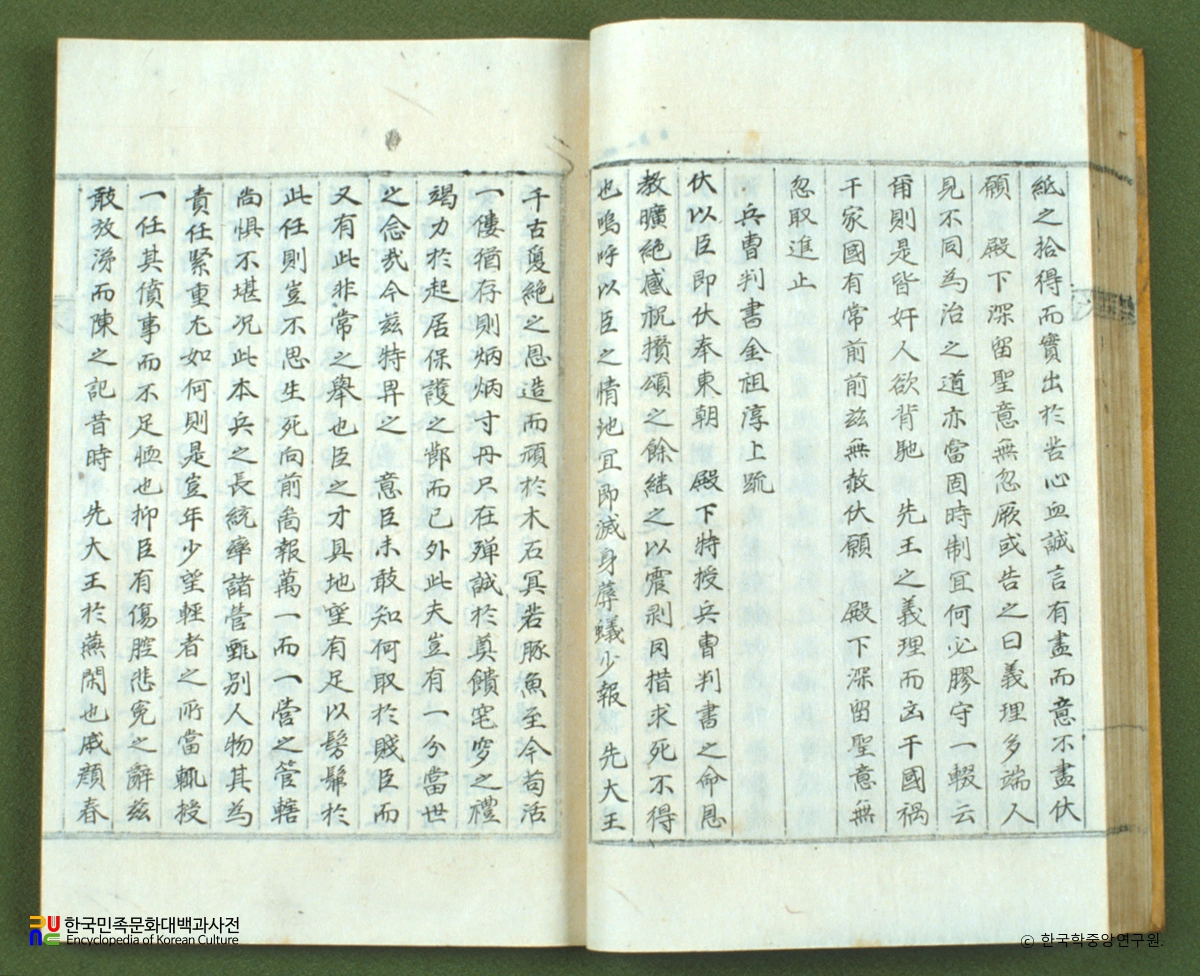 紙之拾得而實出於苦心血誠言有盡而意不盡伏
願 殿下深留聖意無忽厥或告之曰義理多端人
見不同為治之道亦當因時制宜何必膠守一轍云
爾則是皆奸人欲背馳 先王之義理而凶于國禍
于家國有常前前兹無赦伏願 殿下深留聖意無
忽取進止
兵曹判書金祖淳上疏
伏以臣即伏奉東朝 殿下特授兵曹判書之命恩
教曠絶感祝攢頌之餘継之以震剥罔措求死不得
也嗚呼以臣之情地宜即滅身蓐蟻少報 先大王
千古敻絶之恩造而頑於木石冥若豚魚至今苟活
一僂猶存則炳炳寸丹只在殫誠於奠饋窀穸之禮
竭力於起居保護之節而已外此夫豈有一分當世
之念㢤今兹特畀之 意臣未敢知何取於賤臣而
又有此非常之舉也臣之才具地望有足以髣髴於
此任則豈不思生死向前啚報萬一而一營之管轄
尚惧不堪况此本兵之長統率諸營甄别人物其為
責任緊重尤如何則是豈年少望輕者之所當輒授
一任其僨事而不足恤也抑臣有傷腔悲寃之辭兹
敢放涕而陳之記昔時 先大王於燕閑也戚顔春
한국민족문화대백과사전
Encyclopedia of Korean Culture
© 한국학중앙연구원.